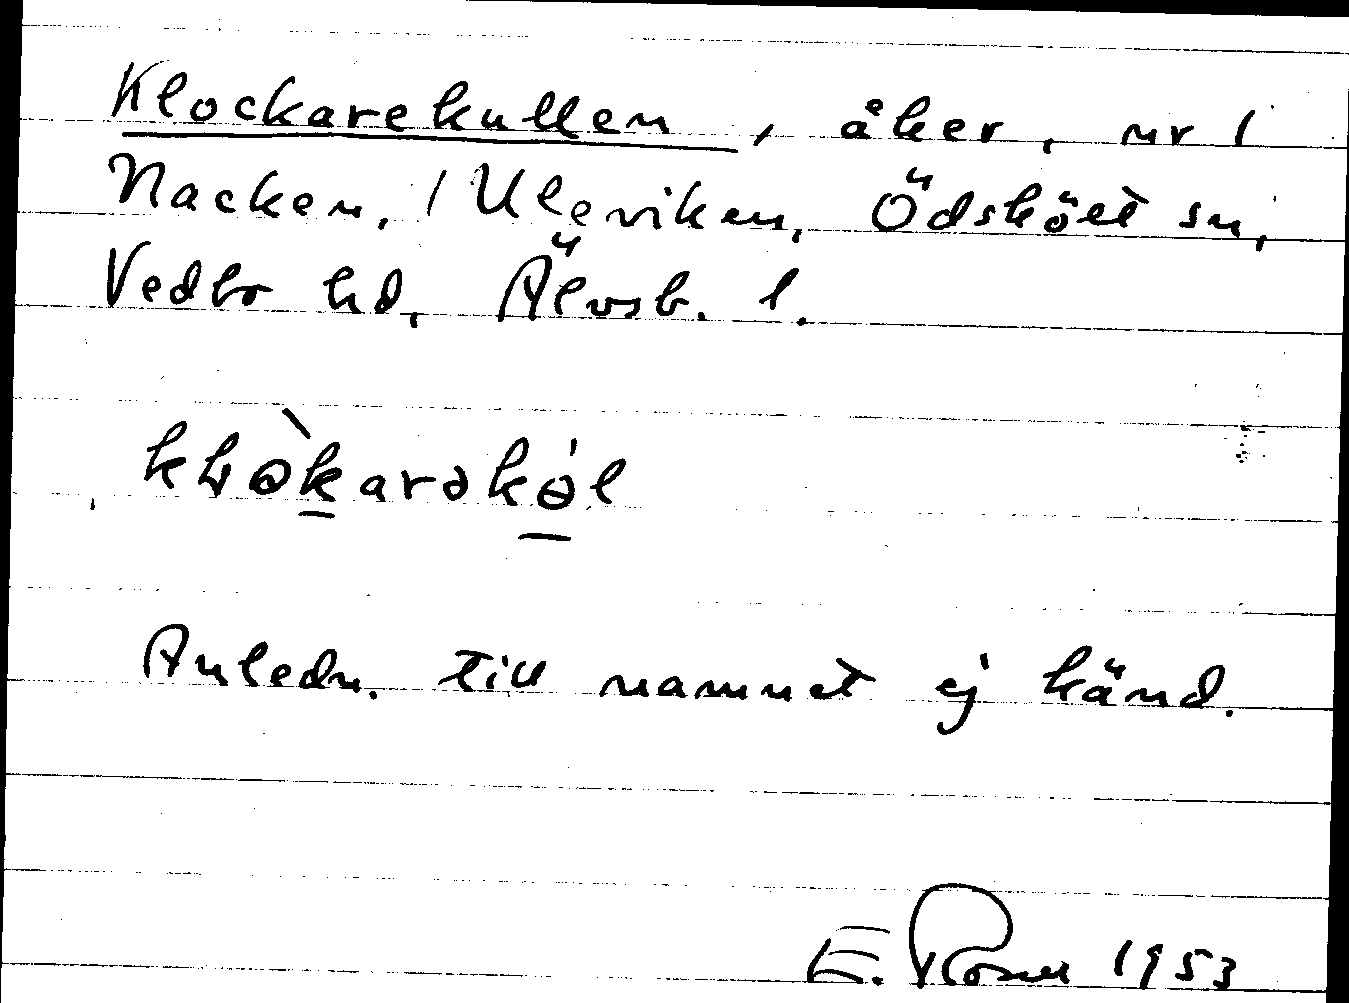 Klockarekullen, åker, nr 1
Nacken, 1 Uleviken, Ödskölt sn,
Vedbo hd, Älvsb. l.
Anledn. till namnet ej känd.
E. 1953